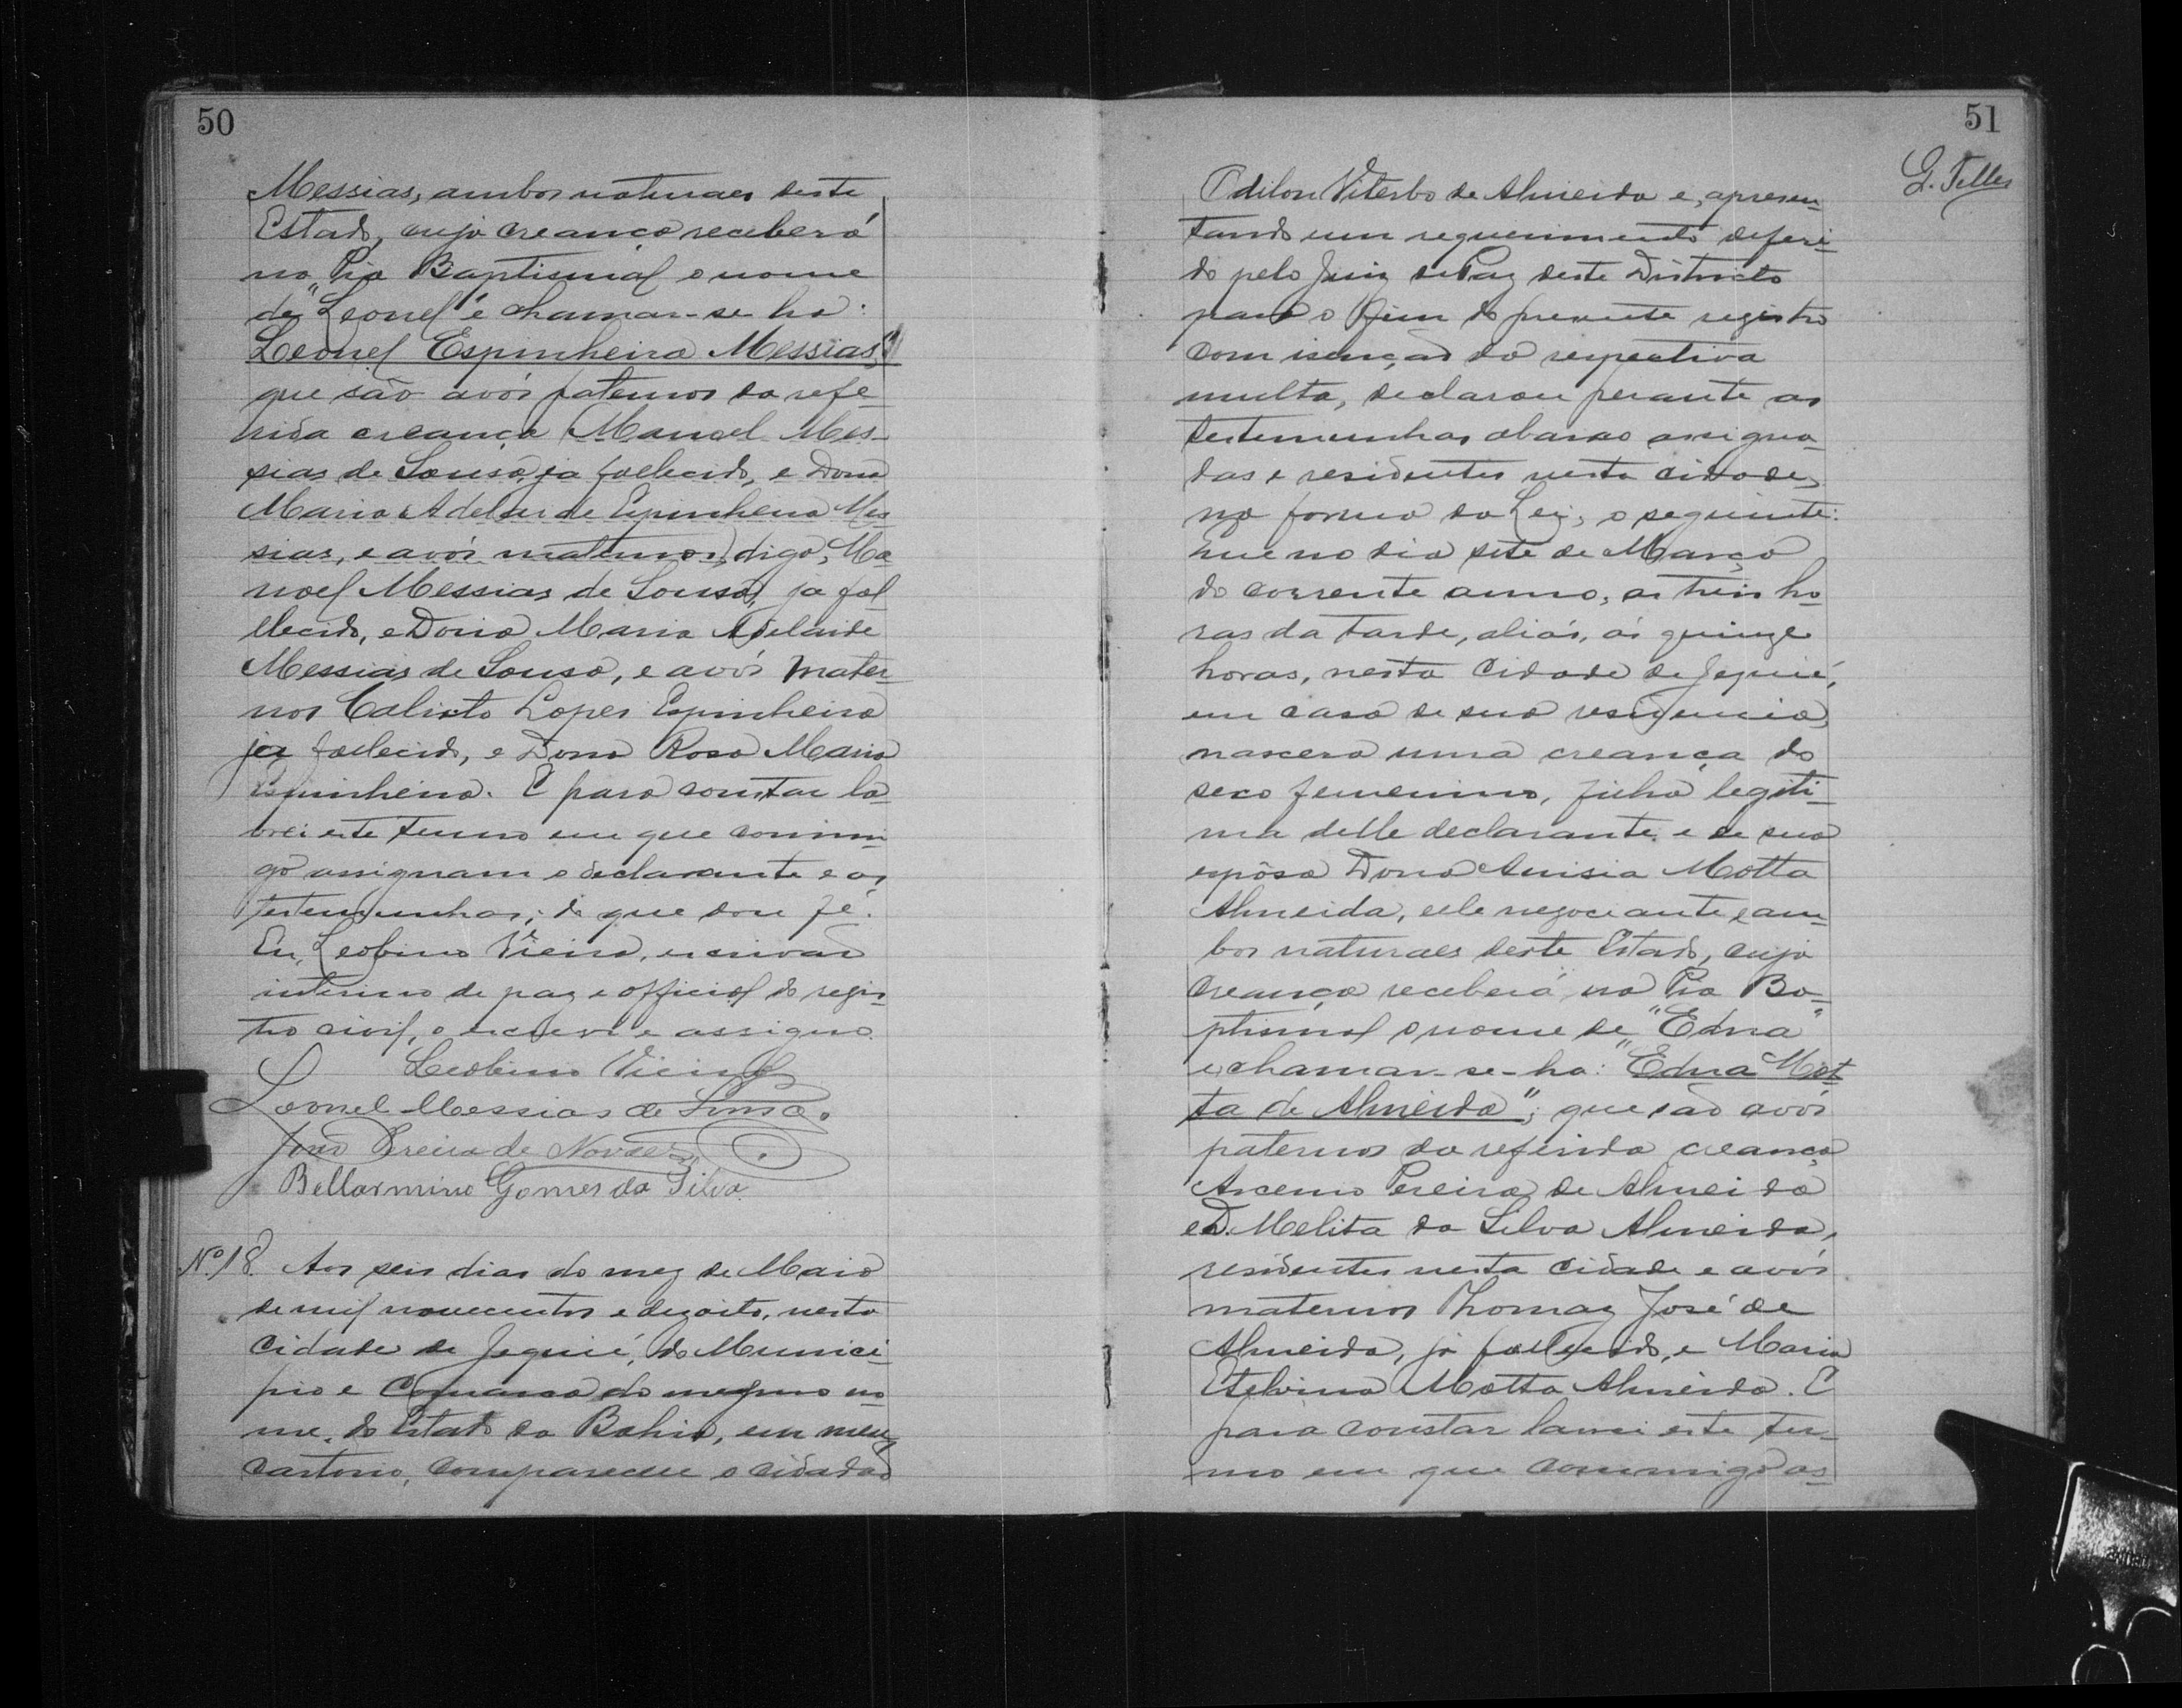 50
Messias, ambos naturaes deste
Estado, cuja creança receberá
na Pia Baptismal o nome
de "Leonel" e chamar-se-ha:
Leonel Espinheira Messias",
que são avós paternos da refe-
rida creança (Manoel Mes-
sias de Sousa, ja fallecido, e Dona
Maria Adelaide Espinheira Mes-
sias, e avós maternos) digo, Ma-
noel Messias de Sousa, ja fal-
lecido, e Dona Maria Adelaide
Messias de Sousa, e avós mater-
nos Calixto Lopes Espinheira
ja fallecido, e Dona Rosa Maria
Espinheira. E para constar la-
vrei este termo em que commi-
go assignam o declarante e as
testemunhas; do que dou fé.
Eu, Leobino Vieira, escrivão
interino de paz e official do regis-
tro civil, o escrevi e assigno.
Leobino Vieira
Leonel Messias de Sousa.
João Pereira de Novaes
Bellarmino Gomes da Silva.
Nº 18. Aos seis dias do mez de Maio
de mil novecentos e dezoito, nesta
Cidade de Jequié, do Munici-
pio e Comarca do mesmo no-
me, do Estado da Bahia, em meu
cartorio, compareceu o cidadão
51
G. Telles
Odilon Viterbo de Almeida e, apresen-
tando um requerimento deferi-
do pelo Juiz de Paz deste Districto
para o fim do presente registro
com isenção da respectiva
multa, declarou perante as
testemunhas abaixo assigna-
das e residentes nesta cidade,
na forma da Lei, o seguinte:
Que no dia sete de Março
do corrente anno, as tres ho-
ras da tarde, aliás, ás quinze
horas, nesta Cidade de Jequié,
em casa de sua residencia,
nascera uma creança do
sexo femenino, filha legiti-
ma delle declarante e de sua
espôsa Dona Anisia Motta
Almeida, elle negociante e am-
bos naturaes deste Estado, cuja
creança receberá na Pia Ba-
ptismal o nome de "Edna"
e chamar-se-ha: "Edna Mot-
ta de Almeida"; que são avós
paternos da referida creança
Arcenio Pereira de Almeida
e D. Melita da Silva Almeida,
residentes nesta cidade e avós
maternos Thomaz José de
Almeida, já fallecido, e Maria
Etelvina Motta Almeida. E
para constar lavrei este ter-
mo em que commigo as-